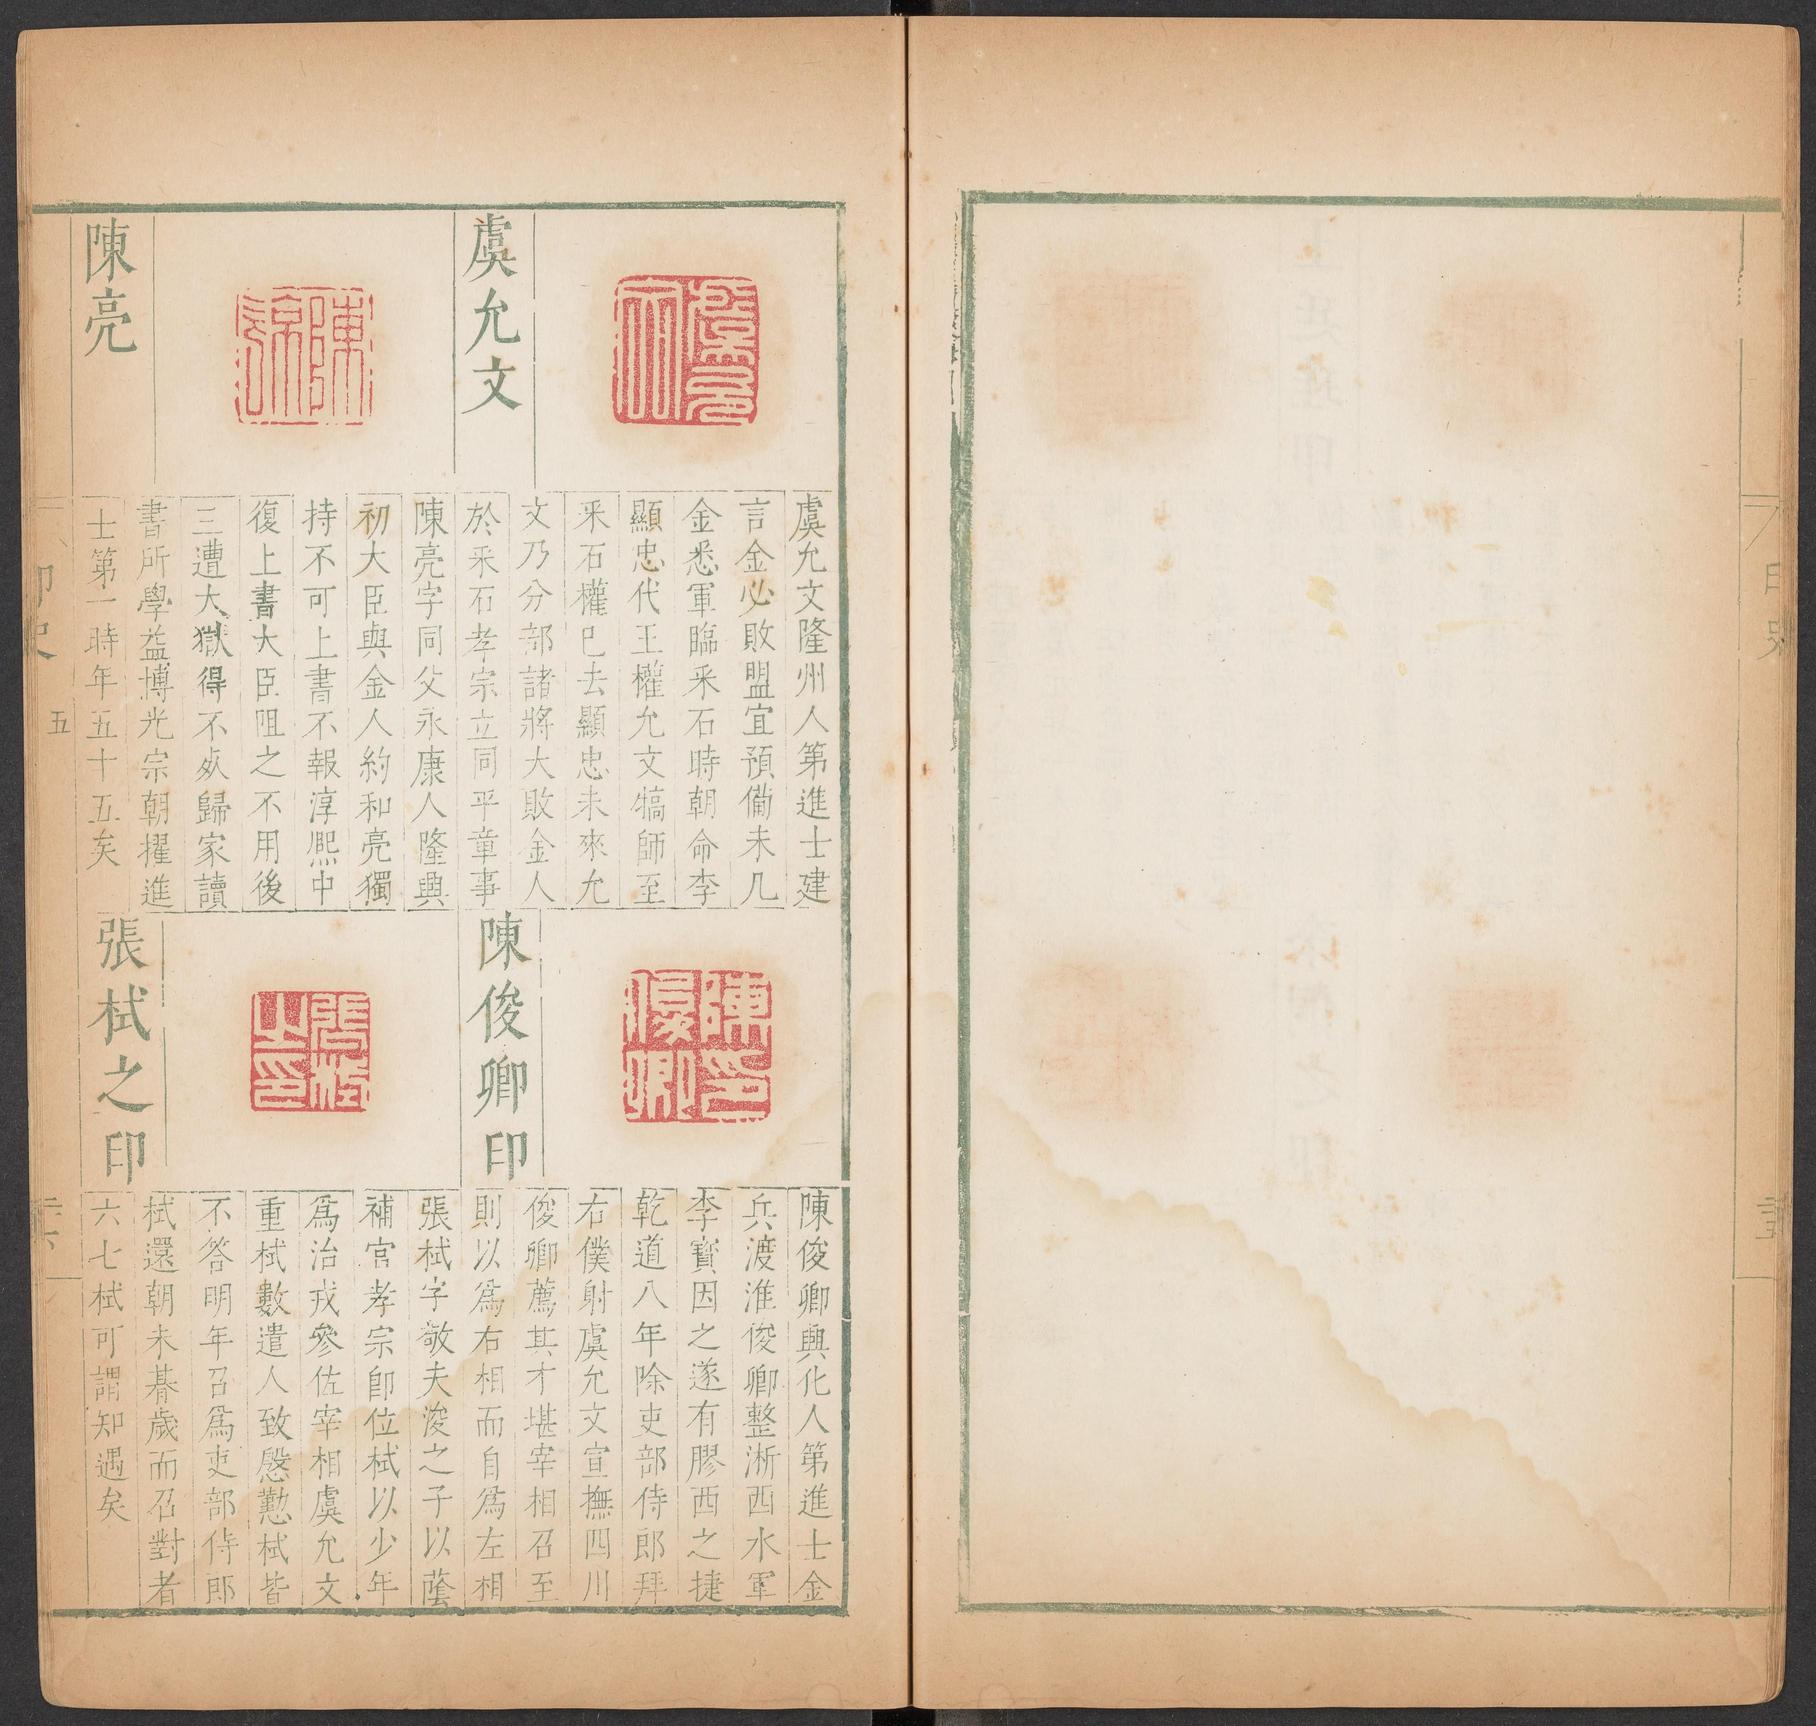 虞允文
虞允文隆州人第進士建
言金必敗盟宜預備未几
金悉軍臨采石時朝命李
顯忠代王權允文犒師至
采石權已去顯忠未來允
文乃分部諸將大敗金人
於采石孝宗立同平章事
陳亮
陳亮字同父永康人隆興
初大臣與金人約和亮獨
持不可上書不報淳熈中
復上書大臣阻之不用後
三遭大獄得不死歸家讀
書所學益博光宗朝擢進
士第一時年五十五矣
陳俊卿印
陳俊卿興化人第進士金
兵渡淮俊卿整淅西水軍
李寶因之遂有膠西之捷
乾道八年除吏部侍郎拜
右僕射虞允文宣撫四川
俊卿薦其才堪宰相召至
則以爲右相而自爲左相
張栻之印
張栻字敬夫浚之子以蔭
補官孝宗即位栻以少年
爲治戎參佐宰相虞允文
重栻數遣人致慇懃栻皆
不答明年召爲吏部侍郎
栻還朝未朞歲而召對者
六七栻可謂知遇矣
印史 五
印史